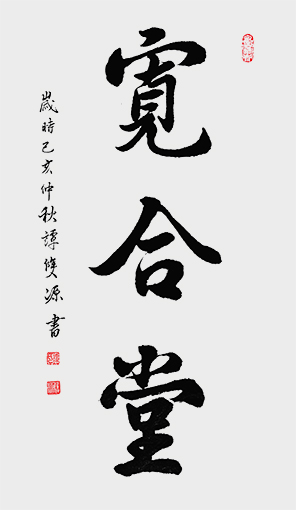 寬合堂
歲時己亥仲秋譚雙源書